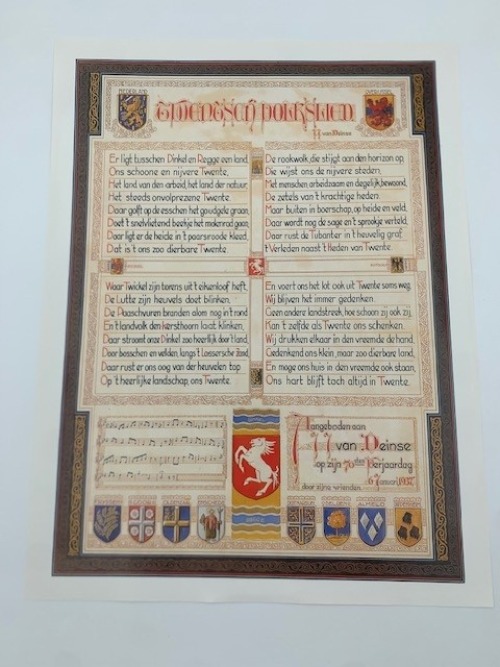 NEDERLAND
OVERIJSSEL
Twentsch Volkslied
J.J. van Deinse
Er ligt tusschen Dinkel en Regge een land,
Ons schoone en nijvere Twente.
Het land van den arbeid, het land der natuur,
Het steeds onvolprezene Twente.
Daar golft op de esschen het goudgele graan,
Doet 't snelvlietend beekje het molenrad gaan,
Daar ligt er de heide in 't paarsroode kleed,
Dat is ons zoo dierbare Twente.
De rookwolk, die stijgt aan den horizon op,
Die wijst ons de nijvere steden,
Met menschen arbeidzaam en degelijk, bewoond,
De zetels van 't krachtige heden.
Maar buiten in boerschap, op heide en veld,
Daar wordt nog de sage en 't sprookje verteld,
Daar rust de Tubanter in 't heuvelig graf,
't Verleden naast 't Heden van Twente.
Waar Twickel zijn torens uit eikenloof heft,
De Lutte zijn heuvels doet blinken,
De Paaschvuren branden alom nog in 't rond
En 't landvolk den kersthoorn laat klinken,
Daar stroomt onze Dinkel zoo heerlijk door 't land,
Door bosschen en velden, langs 't Lossersche zand,
Daar rust er ons oog van der heuvelen top
Op 't heerlijke landschap, ons Twente.
En voert ons het lot ook uit Twente soms weg,
Wij blijven het immer gedenken.
Geen andere landstreek, hoe schoon zij ook zij,
Kan 't zelfde als Twente ons schenken.
Wij drukken elkaar in den vreemde de hand,
Gedenkend ons klein, maar zoo dierbaar land,
En moge ons huis in den vreemde ook staan,
Ons hart blijft toch altijd in Twente.
Aangeboden aan
J.J. van Deinse
op zijn 70sten Verjaardag
6 Januari 1937
door zijne vrienden.
ALMELO